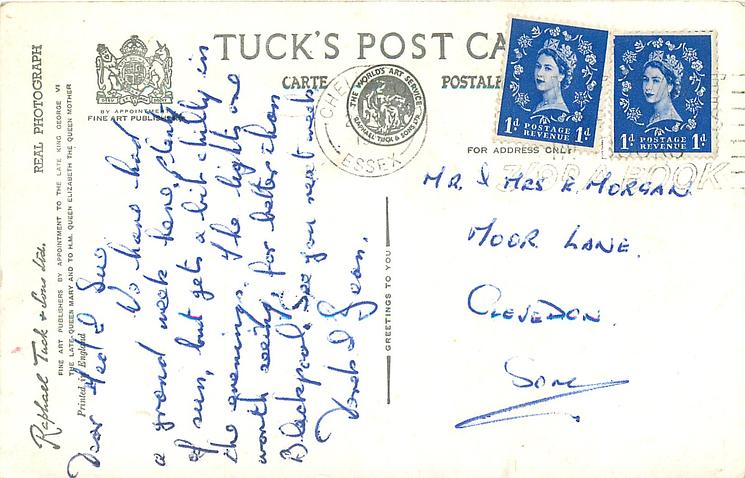 TUCK'S POST CA
CARTE
POSTALE
REAL PHOTOGRAPH
BY APPOINTMENT
FINE ART PUBLISHERS
Raphael Tuck & Sons Ltd.
FINE ART PUBLISHERS BY APPOINTMENT TO THE LATE KING GEORGE VI
THE LATE QUEEN MARY AND TO H.M. QUEEN ELIZABETH THE QUEEN MOTHER
Printed in England
THE WORLD'S ART SERVICE
RAPHAEL TUCK & SONS LTD.
CHEL
ESSEX
1d POSTAGE REVENUE 1d
1d POSTAGE REVENUE 1d
FOR ADDRESS ONLY
GREETINGS TO YOU
Dear & Sue
We have had
a grand week here, Plenty
of sun, but gets a bit chilly in
the evenings. The lights are
worth seeing, far better than
Blackpool. See you next week
& Jean.
MR. & MRS MORGAN
MOOR LANE.
CLEVEDON.
Som